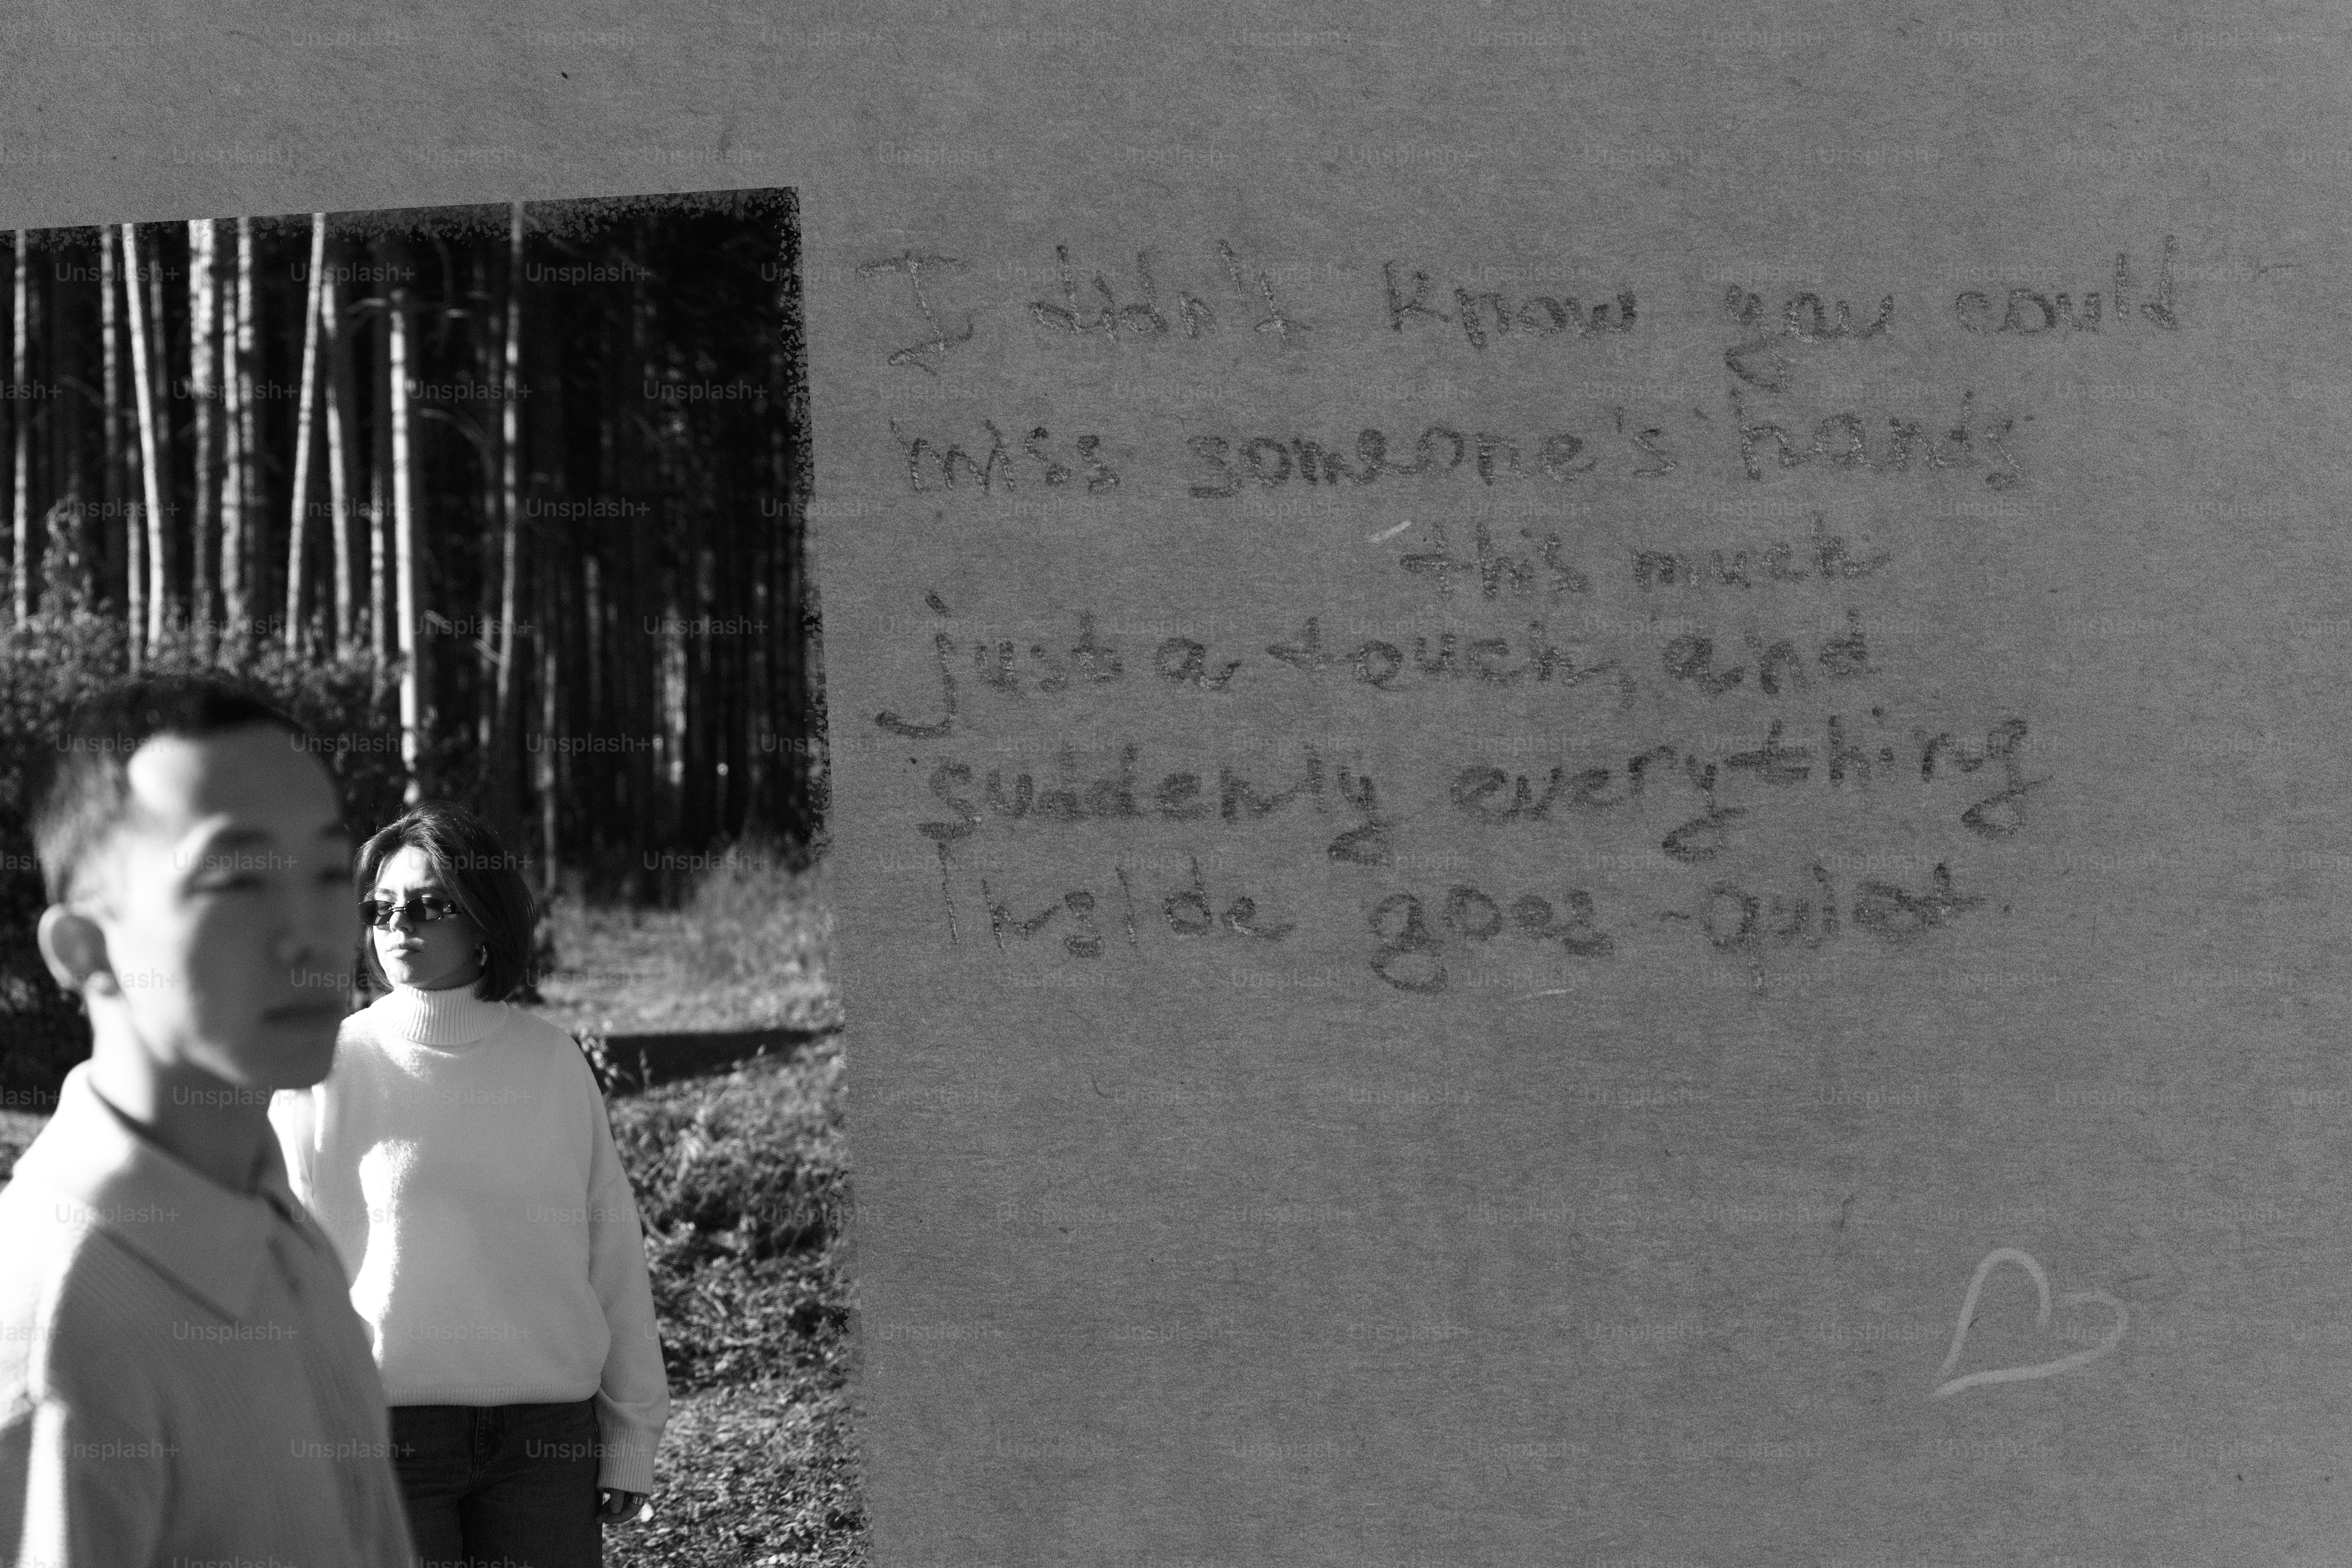 I didn't know you could
miss someone's hands
this much
just a touch, and
suddenly everything
Inside goes quiet